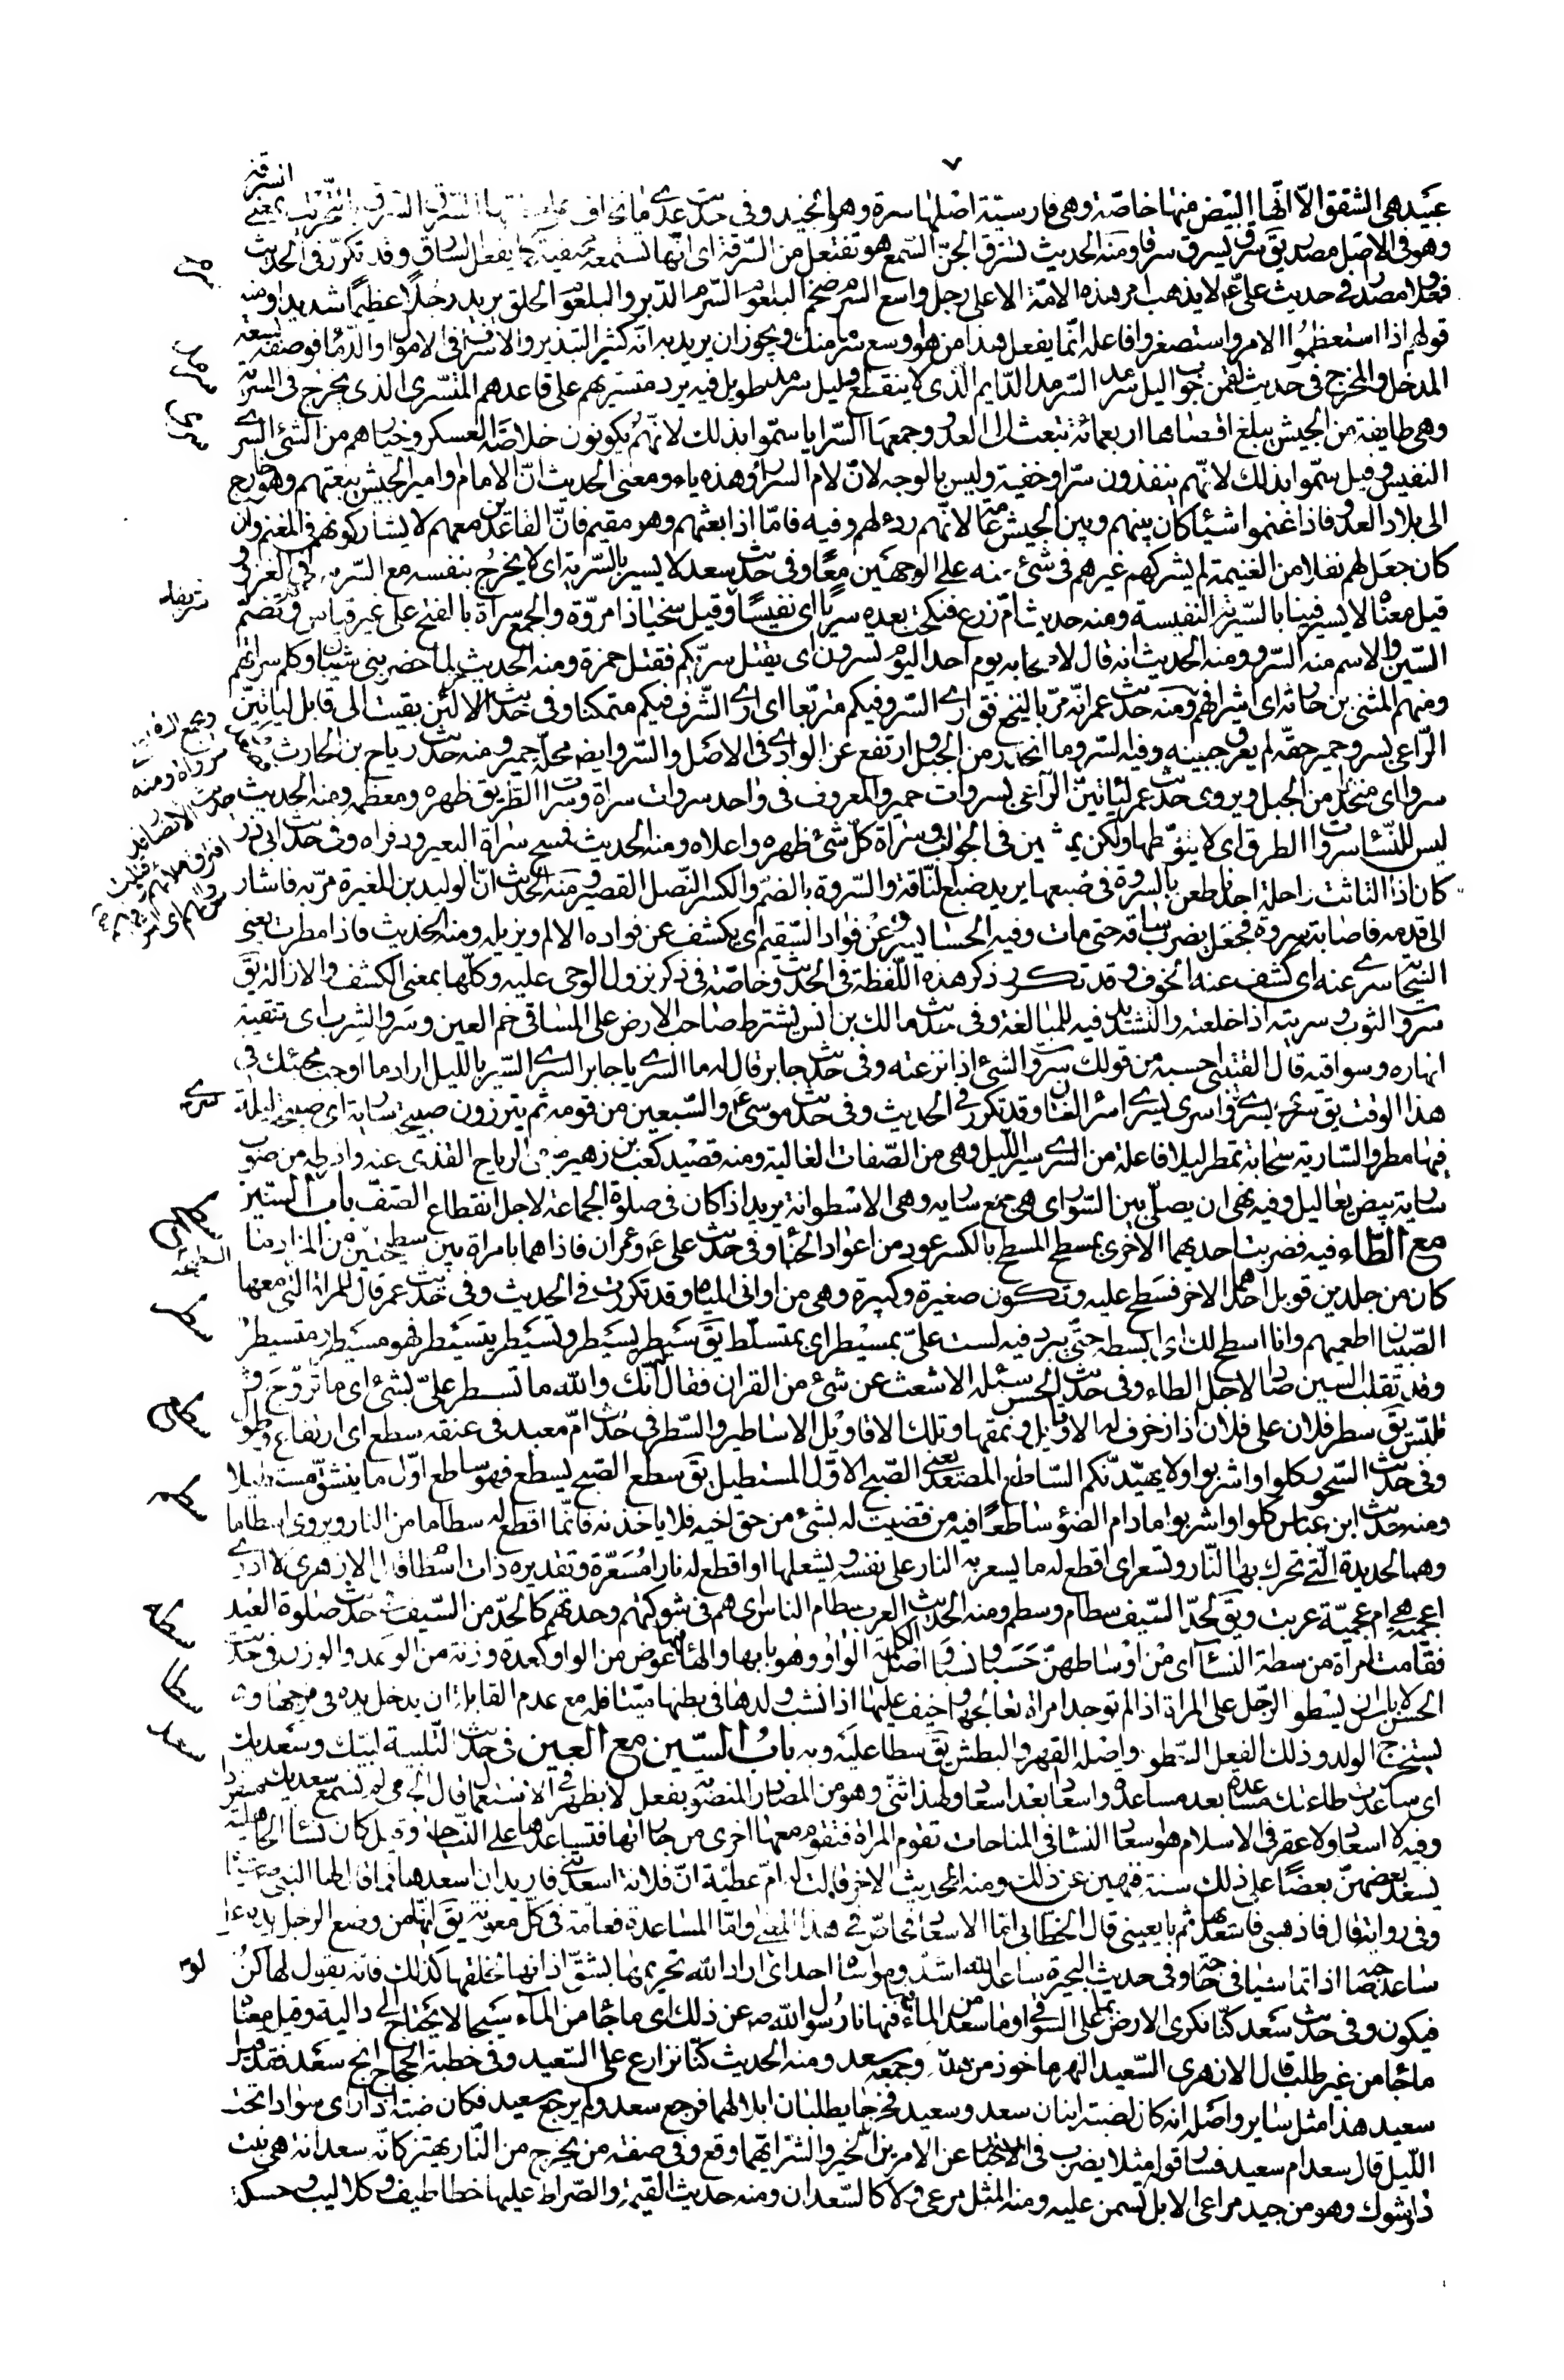 ٧
عبيد هى الشقق الا انها البيض منها خاصة وهى فارسية اصلها سره وهو الجيد وفى حديث عدى ما نخاف على مطيتها السرق السرق بالتحريك بمعنى السرقة
وهو فى الاصل مصدر يق سرق يسرق سرقا ومنه الحديث تسترق الجن السمع هو تفتعل من السرقة اى انها تستمعه مختفية كما يفعل السارق وقد تكرر فى الحديث
فعلا ومصدرا فى حديث على ع لا يذهب امر هذه الامة الا على رجل واسع السرم ضخم البلعوم السرم الدبر والبلعوم الحلق يريد رجلا عظيما شديدا ومنه
قولهم اذا استعظموا الامر واستصغروا فاعله انما يفعل هذا من هو اوسع سرما منك ويجوز ان يريد به انه كثير التبذير والاسراف فى الاموال والدماء فوصفه بسعة
المدخل والمخرج فى حديث لقمن جواب ليل سرمد السرمد الدايم الذى لا ينقطع وليل سرمد طويل فيه يرد متسريهم على قاعدهم المتسرى الذى يخرج فى السرية
وهى طايفة من الجيش يبلغ اقصاها اربعمائة تبعث الى العدو وجمعها السرايا سموا بذلك لانهم يكونون خلاصة العسكر وخيارهم من الشئ السرى
النفيس وقيل سموا بذلك لانهم ينفذون سرا وخفية وليس بالوجه لان لام السر راء وهذه ياء ومعنى الحديث ان الامام وامير الجيش يبعثهم وهو خارج
الى بلاد العدو فاذا غنموا شيئا كان بينهم وبين الجيش عامة لانهم ردء لهم وفيه فاما اذا بعثهم وهو مقيم فان القاعدين معهم لا يشاركونهم فى المغنم وان
كان جعل لهم نفلا من الغنيمة لم يشركهم غيرهم فى شئ منه على الوجهين معا وفى حديث سعد لا يسير بالسرية اى لا يخرج بنفسه مع السرية فى الغزو و
قيل معناه لا يسير فينا بالسيرة النفيسة ومنه حديث ام زرع فنكحت بعده سريا اى نفيسا وقيل سخيا ذا مروة والجمع سراة بالفتح على غير قياس وقد تضم
السين والاسم منه السرو ومنه الحديث انه قال لاصحابه يوم احد اليوم تسرون اى يقتل سريكم فقتل حمزة ومنه الحديث لما حضر بنى شيبان وكلم سراتهم
ومنهم المثنى بن حارثة اى اشرافهم ومنه حديث عمر انه مر بالنخع فق ارى السرو فيكم متربعا اى ارى الشرف فيكم متمكنا وفى حديثه الاخر لئن بقيت الى قابل لياتين
الراعى بسرو حمير حقه لم يعرق جبينه وفيه السرو ما انحدر من الجبل وارتفع عن الوادى فى الاصل والسرو ايض محلة حمير ومنه حديث رياح بن الحارث
سروا اى منحدرا من الجبل ويروى حديث عمر لياتين الراعى بسروات حمير والمعروف فى واحد سروات سراة وسراة الطريق ظهره ومعظمه ومنه الحديث
ليس للنساء سروات الطرق اى لا يتوسطنها ولكن يمشين فى الجوانب وسراة كل شئ ظهره واعلاه ومنه الحديث فمسح سراة البعير وذفراه وفى حديث ابى ذر
كان اذا التاثت راحلة احدنا طعن بالسروة فى ضبعها يريد ضبع الناقة والسروة بالضم والكسر النصل القصير ومنه الحديث ان الوليد بن المغيرة مر به فاشار
الى قدمه فاصابته سروة فجعل يضرب ساقه حتى مات وفيه الحساء يسرو عن فؤاد السقيم اى يكشف عن فواده الالم ويزيله ومنه الحديث فاذا مطرت يعنى
السحابة سرى عنه اى كشف عنه الخوف وقد تكرر ذكر هذه اللفظة فى الحديث وخاصة فى ذكر نزول الوحى عليه وكلها بمعنى الكشف والازالة يق
سروت الثوب وسريته اذا خلعته والتشديد فيه للمبالغة وفى حديث مالك بن انس يشترط صاحب الارض على المساقى خم العين وسرو الشرب اى تنقية
انهاره وسواقيه قال القتيبى احسبه من قولك سروت الشئ اذا نزعته وفى حديث جابر قال له ما السرى يا جابر السرى السير بالليل اراد ما اوجب مجيئك فى
هذا الوقت يق سرى يسرى واسرى يسرى اسراء لغتان وقد تكرر فى الحديث وفى حديث موسى ع والسبعين من قومه ثم يبرزون صبيحة سارية اى صبيحة ليلة
فيها مطر والسارية سحابة تمطر ليلا فاعلة من السرى سير الليل وهى من الصفات الغالبة ومنه قصيد كعب بن زهير تنفى الرياح القذى عنه وافرطه من صوب
سارية بيض يعاليل وفيه نهى ان يصلى بين السوارى هى جمع سارية وهى الاسطوانة يريد اذا كان فى صلوة الجماعة لاجل انقطاع الصف باب السين
مع الطاء فيه فضربت احديهما الاخرى بمسطح المسطح بالكسر عود من اعواد الخباء وفى حديث على ع وعمران فاذا هما بامراة بين سطيحتين من المزاد ما
كان من جلدين قوبل احدهما الاخر فسطح عليه وتكون صغيرة وكبيرة وهى من اوانى المياه وقد تكررت فى الحديث وفى حديث عمر قال للمراة التى معها
الصبيان اطعميهم وانا اسطح لك اى ابسطه حتى يبرد فيه لست على بمسيطر اى بمتسلط يق سيطر يسيطر وتسيطر يتسيطر فهو مسيطر ومتسيطر
وقد تقلب السين صادا لاجل الطاء وفى حديث الحسن سئله الاشعث عن شئ من القران فقال انك والله ما تسطر على بشئ اى ما تروج و
تلبس يق سطر فلان على فلان اذا زخرف له الاقاويل ونمقها وتلك الاقاويل الاساطير والسطر فى حديث ام معبد فى عنقه سطع اى ارتفاع وطول
وفى حديث السحور كلوا واشربوا ولا يهيدنكم الساطع المصعد يعنى الصبح الاول المستطيل يق سطع الصبح يسطع فهو ساطع اول ما ينشق مستطيلا
ومنه حديث ابن عباس كلوا واشربوا ما دام الضوء ساطعا فيه من قضيت له بشئ من حق اخيه فلا ياخذنه فانما اقطع له سطاما من النار ويروى اسطاما
وهما الحديدة التى تحرك بها النار وتسعر اى اقطع له ما يسعر به النار على نفسه ويشعلها او اقطع له نارا مسعرة وتقديره ذات اسطام قال الازهرى لا ادرى
اعجمية هى ام عجمية عربت ويق لحد السيف سطام وسطم ومنه الحديث العرب سطام الناس اى هم فى شوكتهم وحدتهم كالحد من السيف فى حديث صلوة العيد
فقامت امراة من سطة النساء اى من اوساطهن حسبا ونسبا واصل الكلمة الواو وهو بابها والهاء فيها عوض من الواو كعدة وزنة من الوعد والوزن فى حديث
الحسن لا باس ان يسطو الرجل على المراة اذا لم توجد امراة تعالجها وخيف عليها اذا نشب ولدها فى بطنها ميتا فله مع عدم القابلة ان يدخل يده فى فرجها و
يستخرج الولد وذلك الفعل السطو واصله القهر والبطش يق سطا عليه وبه باب السين مع العين فى حديث التلبية لبيك وسعديك
اى ساعدت طاعتك مساعدة بعد مساعدة واسعادا بعد اسعاد ولهذا ثنى وهو من المصادر المنصوبة بفعل لا يظهر فى الاستعمال قال الجرمى لم يسمع سعديك مفردا
وفيه لا اسعاد ولا عقر فى الاسلام هو اسعاد النساء فى المناحات تقوم المراة فتقوم معها اخرى من جاراتها فتساعدها على النياحة وقيل كان نساء الجاهلية
يسعد بعضهن بعضا على ذلك سنة فنهين عن ذلك ومنه الحديث الاخر قالت له ام عطية ان فلانة اسعدتنى فاريد ان اسعدها فما قال لها النبى ص شيئا
وفى رواية قال فاذهبى فاسعديها ثم بايعينى قال الخطابى اما الاسعاد فخاص فى هذا المعنى واما المساعدة فعامة فى كل معونة يق انها من وضع الرجل يده على
ساعد صاحبه اذا تماشيا فى حاجة وفى حديث البحيرة ساعد الله اشد وموساه احد اى اراد الله تحريمها بشق اذانها لخلقها كذلك فانه يقول لها كن
فيكون وفى حديث سعد كنا نكرى الارض بما على السواقى وما سعد من الماء فيها فنهانا رسول الله ص عن ذلك اى ما جاء من الماء سيحا لا يحتاج الى دالية وقيل معناه
ما جاء من غير طلب قال الازهرى السعيد النهر ماخوذ من هذا وجمعه سعد ومنه الحديث كنا نزارع على السعيد وفى خطبة الحجاج انج سعد فقد قتل
سعيد هذا مثل ساير واصله انه كان لضبة ابنان سعد وسعيد فخرجا يطلبان ابلا لهما فرجع سعد ولم يرجع سعيد فكان ضبة اذا راى سوادا تحت
الليل قال سعد ام سعيد فسار قوله مثلا يضرب فى الاستخبار عن الامرين الخير والشر ايهما وقع وفى صفة من يخرج من النار يهتز كانه سعدانة هى نبت
ذو شوك وهو من جيد مراعى الابل تسمن عليه ومنه المثل مرعى ولا كالسعدان ومنه حديث القيمة والصراط عليها خطاطيف وكلاليب وحسكة
سرم
سرمد
سرى
سطح
سطر
سطع
سطم
سطا
سعد